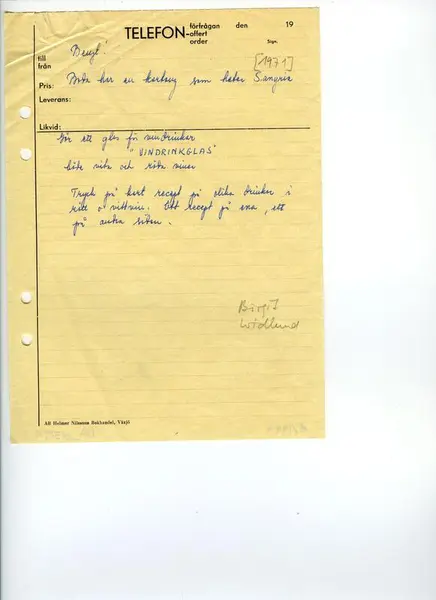 TELEFON-förfrågan
offert
order
den 19
Sign.
Bengt!
[1971]
till
från
Boda har en kartong som heter Sangria
Pris:
Leverans:
Likvid:
Gör ett glas för vindrinkar
"VINDRINKGLAS"
både vita och röda viner
Tryck på kort recept på olika drinkar i
rött o vittvin. Ett recept på ena, ett
på andra sidan.
Birgit
Widlund
AB Helmer Nilssons Bokhandel, Växjö